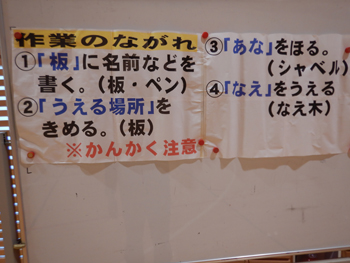 作業のながれ
①「板」に名前などを
書く。（板・ペン）
②「うえる場所」を
きめる。（板）
※かんかく注意
③「あな」をほる。
（シャベル）
④「なえ」をうえる
（なえ木）